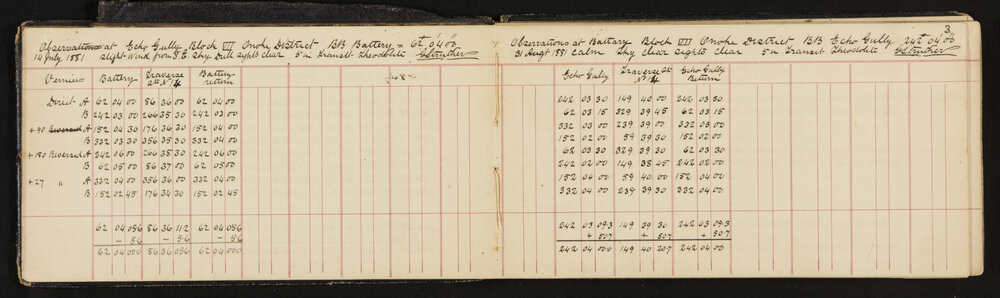 Observations at Echo Gully Block VII Omoke District BB Battery = 62° 04' 00"
14 July 1881 slight wind from S.E. Sky Dull sights clear 5 in transit theodolite GStruthers
Vernius Battery Traverse Stn No 14 Battery return
Direct A 62 04 00 86 36 00 62 04 00
B 242 03 00 266 35 30 242 03 00
+90 Reversed A 152 04 30 176 36 30 152 04 00
B 332 03 30 356 35 30 332 04 00
+180 Reversed A 242 06 00 266 35 30 242 06 00
B 62 05 00 86 37 00 62 05 00
+27 " A 332 04 00 356 36 00 332 04 00
B 152 02 45 176 34 30 152 02 45
62 04 05.6 86 36 11.2 62 04 05.6
- 5.6 - 5.6 - 5.6
62 04 00.0 86 36 05.6 62 04 00
3
Observations at Battery Block VII Omoke District BB Echo Gully 242° 04' 00"
31 Augt 1881 Calm Sky clear sights clear 5 in Transit Theodolite GStruthers
Echo Gully Traverse Stn No 14 Echo Gully Return
242 03 30 149 40 00 242 03 30
62 03 15 329 39 45 62 03 15
332 03 00 239 39 00 332 03 00
152 02 00 59 39 30 152 02 00
62 03 30 329 39 30 62 03 30
242 02 00 149 38 45 242 02 00
152 04 00 59 40 00 152 04 00
332 04 00 239 39 30 332 04 00
242 03 09.3 149 39 30 242 03 09.3
+ 50.7 + 50.7 + 50.7
242 04 00.0 149 40 20.7 242 04 00